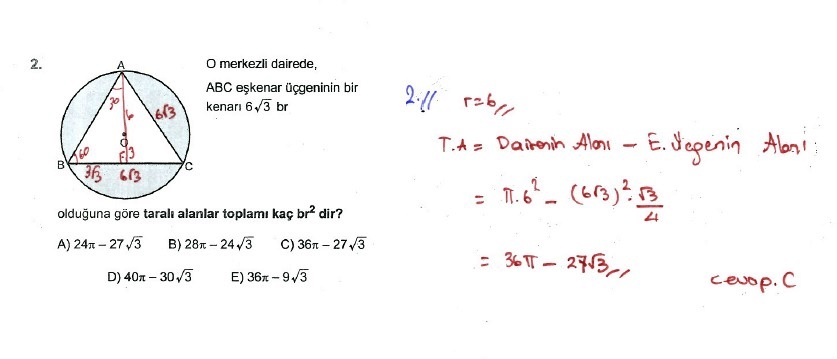 2.
O merkezli dairede,
ABC eşkenar üçgeninin bir
kenarı 6√3 br
A
30
6
6√3
O
60
3
B
3√3
6√3
C
olduğuna göre taralı alanlar toplamı kaç br² dir?
A) 24π – 27√3 B) 28π – 24√3 C) 36π – 27√3
D) 40π – 30√3 E) 36π – 9√3
2.// r=6//
T.A = Dairenin Alanı – E. Üçgenin Alanı
= π.6² – (6√3)².√3/4
= 36π – 27√3//
cevap. C